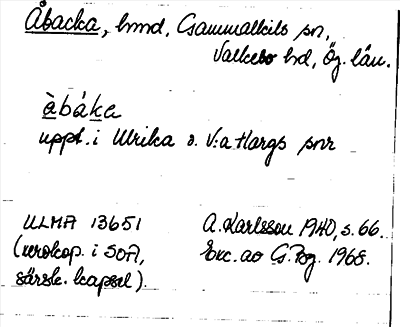 Åbacka, hmd, Gammalkils sn,
Valkebo hd, Ög. län.
àbáka
uppt. i Ulrika o. V:a Hargs snr
ULMA 13651
(xerokop. i SOA,
särsk. kapsel).
A. Karlsson 1940, s. 66.
Exc. av G. 1968.